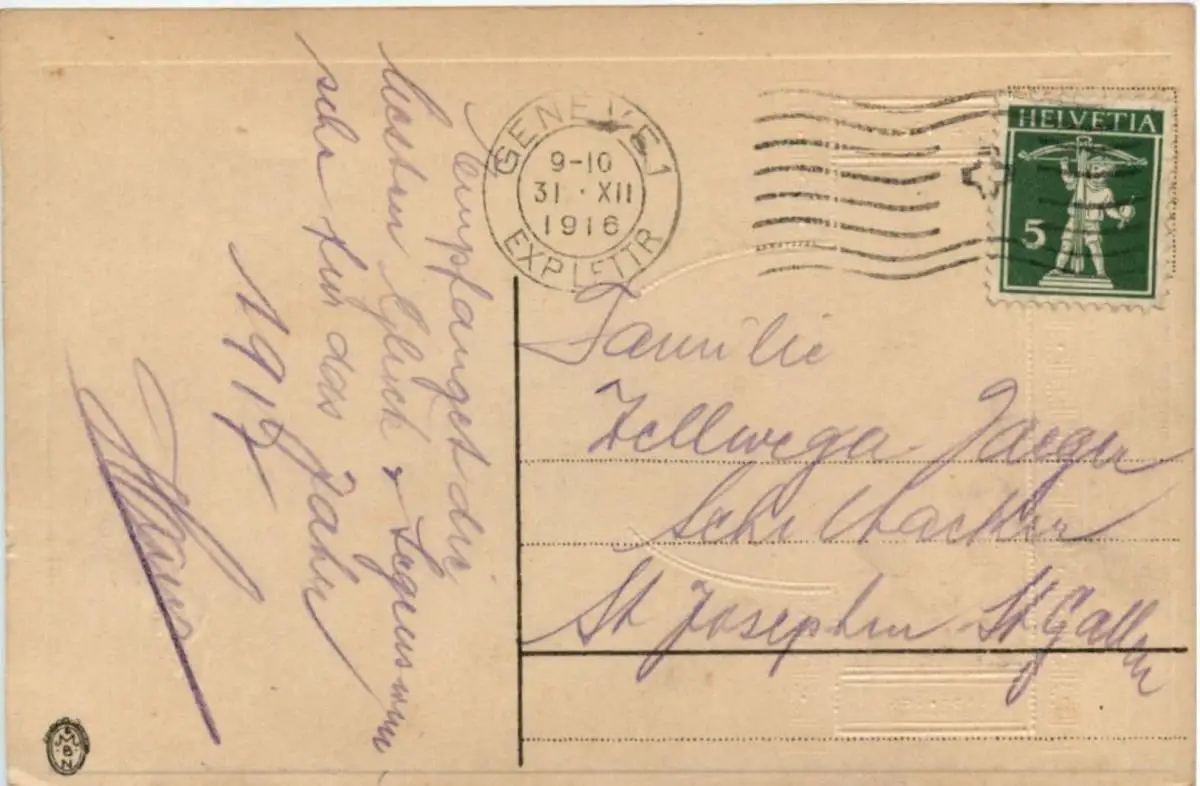 empfanget die
besten Glück & Segenswün
sche für das Jahr
1917
GENEVE 1
9-10
31 · XII
1916
EXP. LETTR
HELVETIA
5
Familie
Zellweger-Jaeger
St Josephen St Gallen